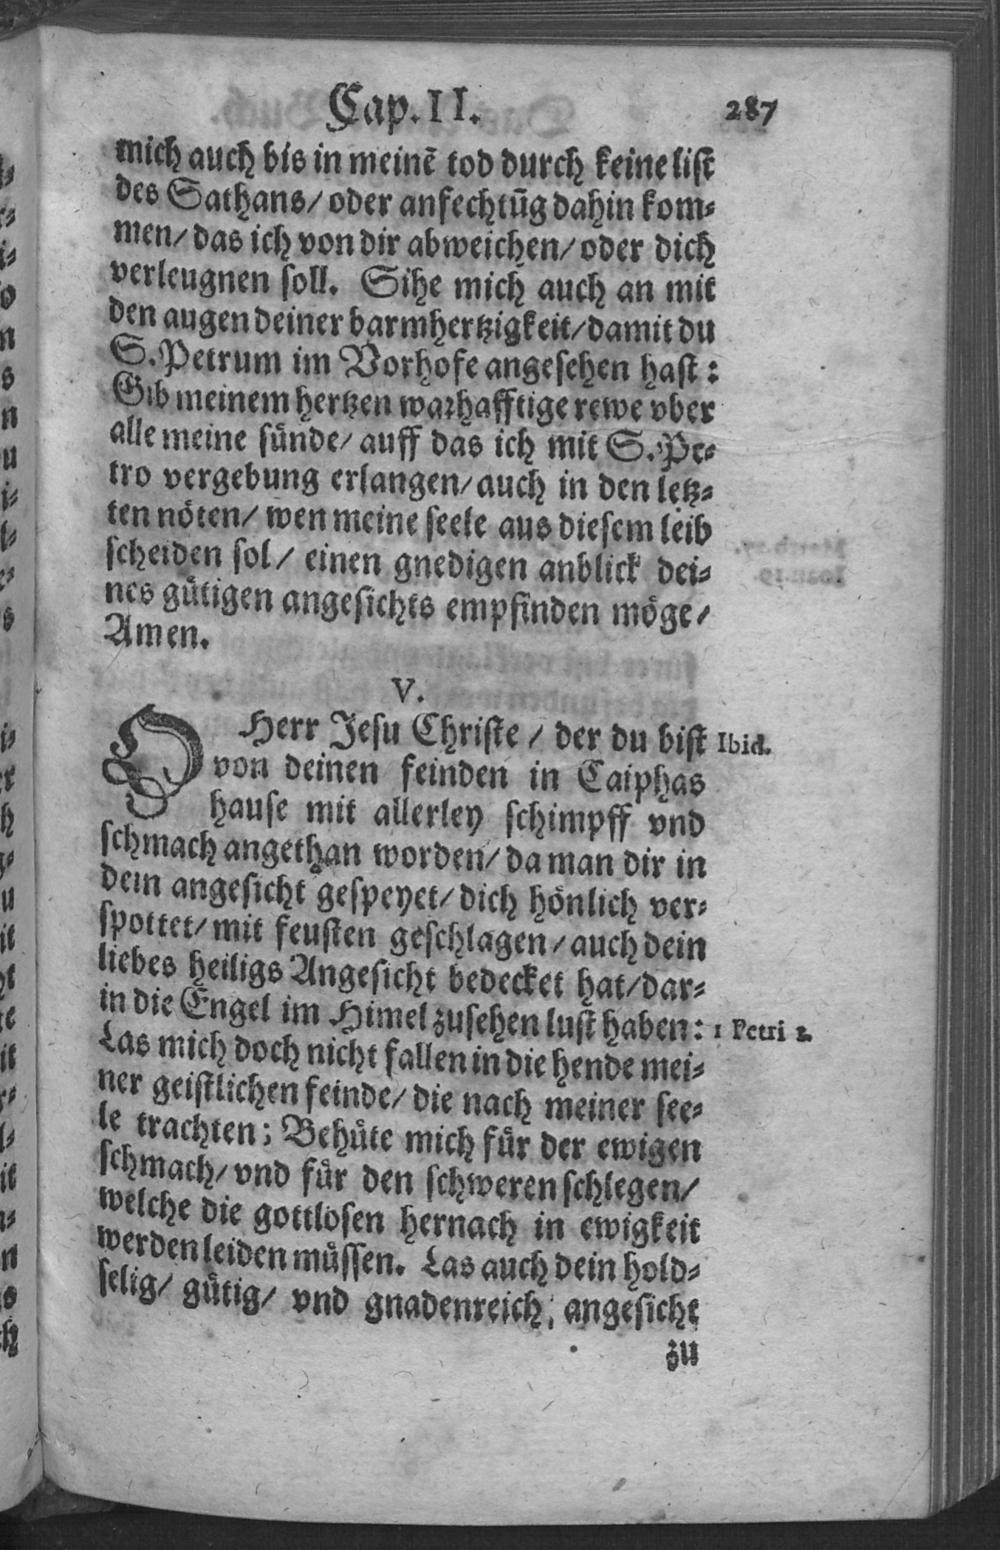 Cap. II. 287
mich auch bis in meinē tod durch keine list
des Sathans/ oder anfechtūg dahin kom⸗
men/ das ich von dir abweichen/ oder dich
verleugnen soll. Sihe mich auch an mit
den augen deiner barmhertzigkeit/ damit du
S. Petrum im Vorhofe angesehen hast:
Gib meinem hertzen warhafftige rewe vber
alle meine sünde/ auff das ich mit S. Pe⸗
tro vergebung erlangen/ auch in den letz⸗
ten nöten/ wen meine seele aus diesem leib
scheiden sol/ einen gnedigen anblick dei⸗
nes gütigen angesichts empfinden möge/
Amen.
V.
O Herr Jesu Christe/ der du bist Ibid.
von deinen feinden in Caiphas
hause mit allerley schimpff vnd
schmach angethan worden/ da man dir in
dein angesicht gespeyet/ dich hönlich ver⸗
spottet/ mit feusten geschlagen/ auch dein
liebes heiligs Angesicht bedecket hat/ dar⸗
in die Engel im Himel zusehen lust haben: 1 Petri 1.
Las mich doch nicht fallen in die hende mei⸗
ner geistlichen feinde/ die nach meiner see⸗
le trachten; Behüte mich für der ewigen
schmach/ vnd für den schweren schlegen/
welche die gottlosen hernach in ewigkeit
werden leiden müssen. Las auch dein hold⸗
selig/ gütig/ vnd gnadenreich, angesicht
zu